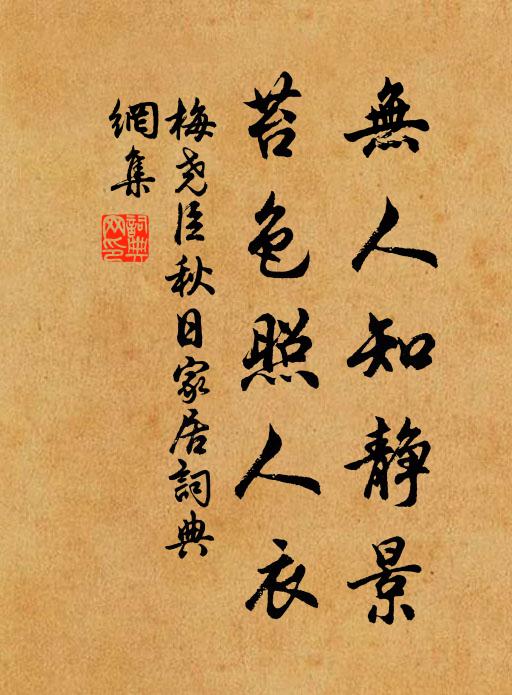 無人知静景
苔色照人衣
梅尧臣秋日家居詞典
網集
詞典
网印